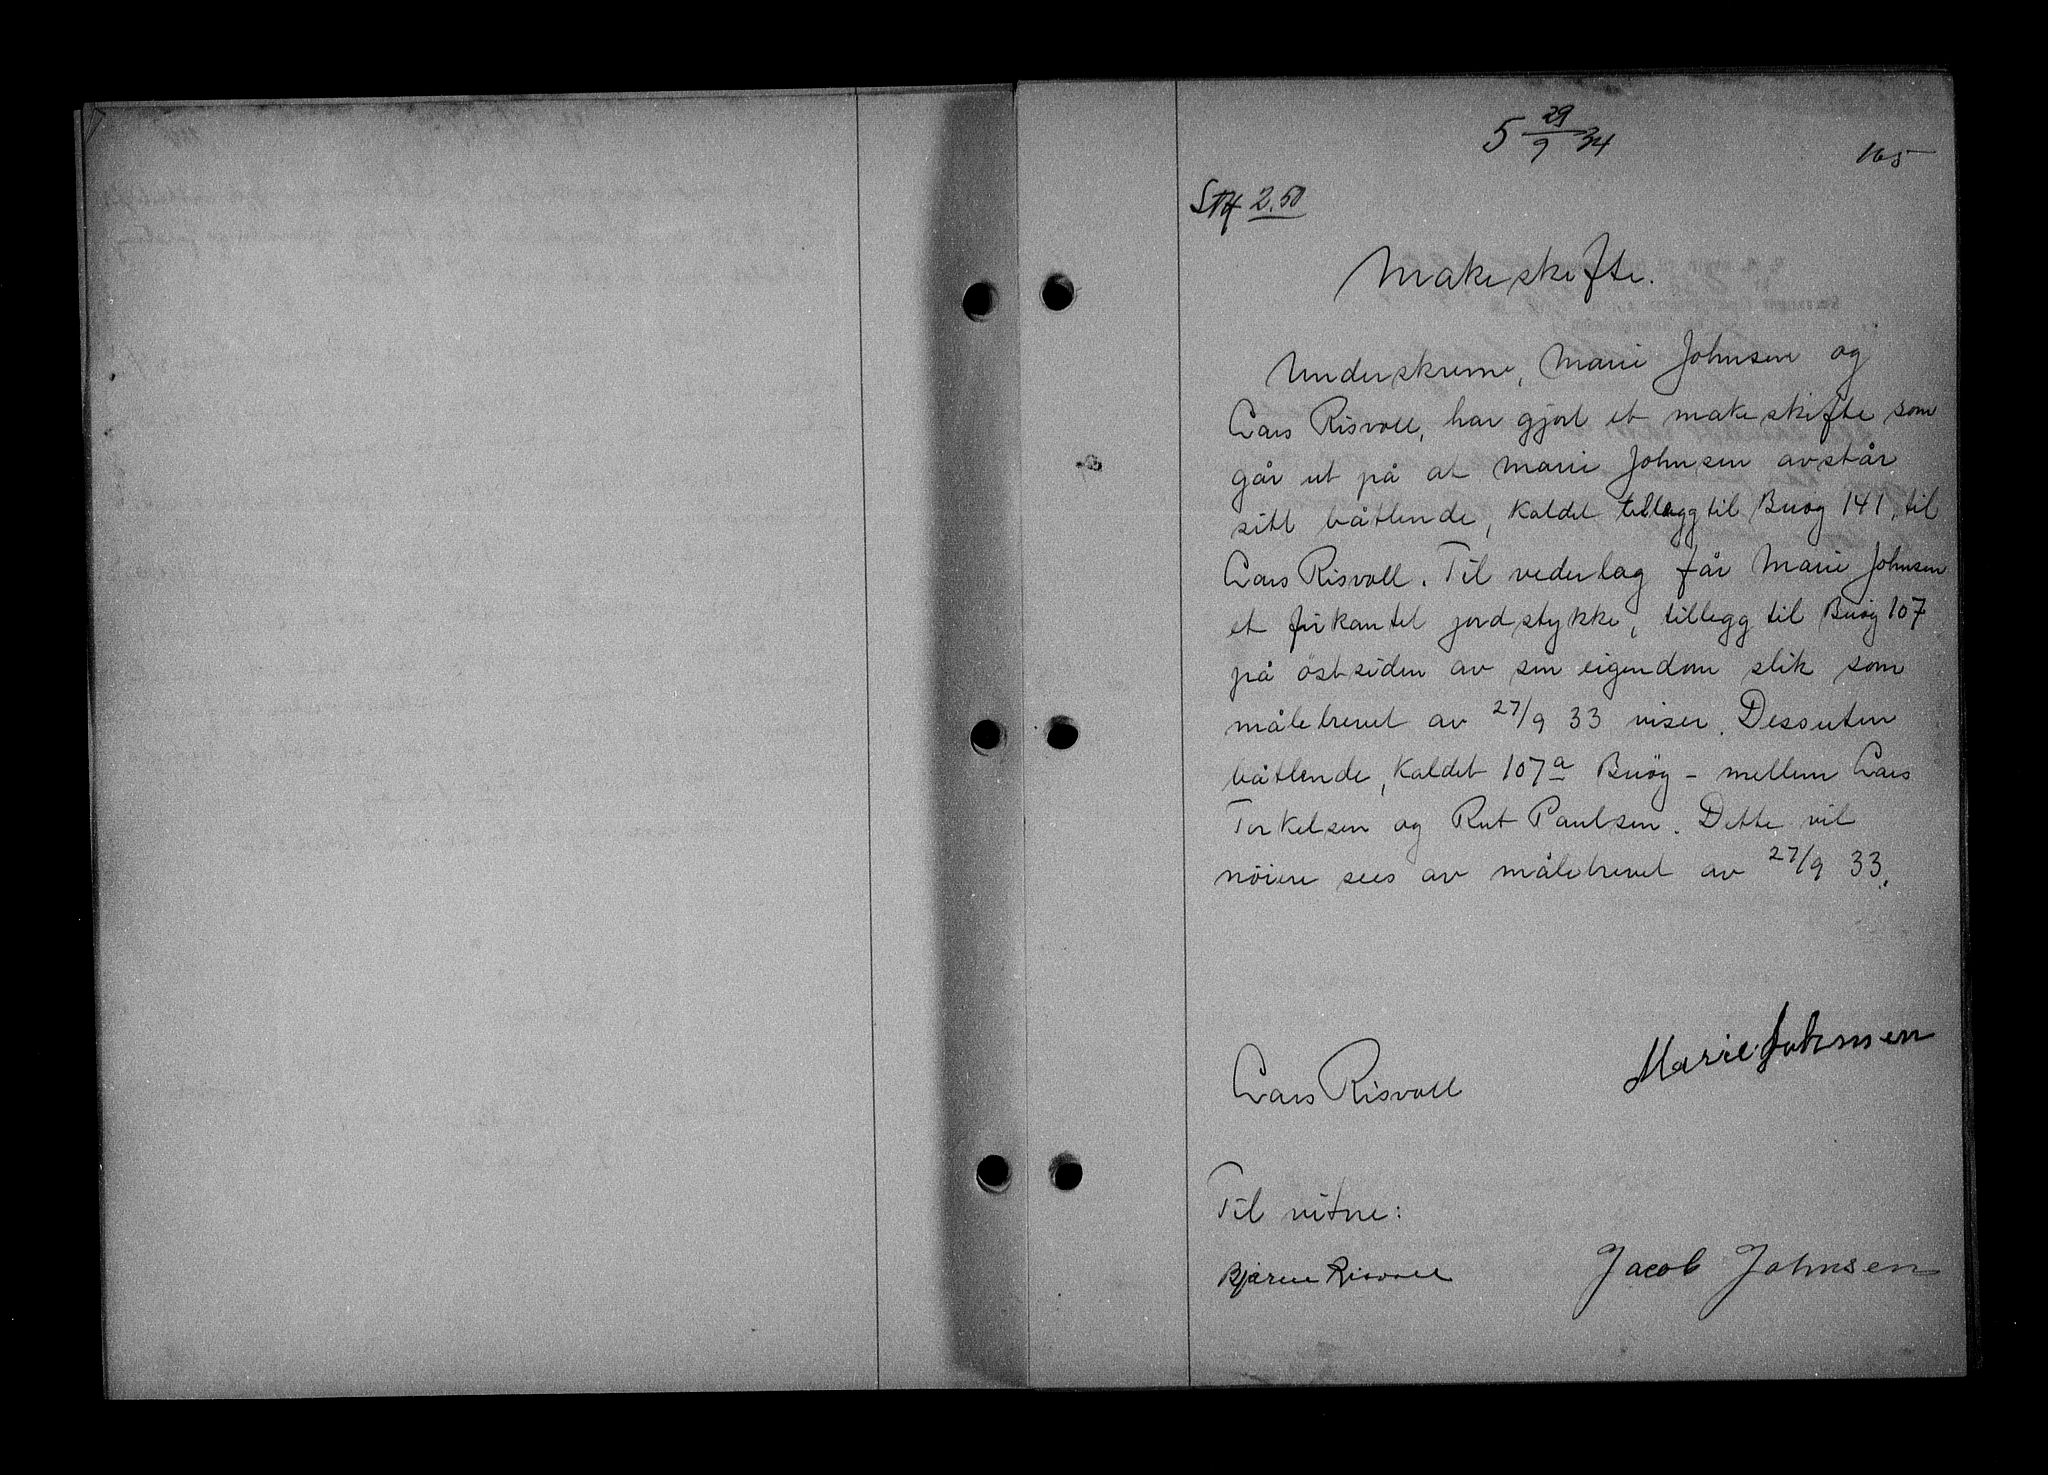 5 29/9 34
165
Stf 2.50
Makeskifte.
Underskrevne, Marie Johnsen og
Lars Risvoll, har gjort et makeskifte som
går ut på at Marie Johnsen avstår
sitt båtlende, kaldet tillegg til Buøy 141, til
Lars Risvoll. Til vederlag får Marie Johnsen
et firkantet jordstykke, tillegg til Buøy 107
på östsiden av sin eigendom slik som
målebrevet av 27/9 33 viser. Dessuten
båtlende, kaldet 107a Buöy - mellem Lars
Torkelsen og Rut Paulsen. Dette vil
nöiere sees av målebrevet av 27/9 33.
Marie Johnsen
Lars Risvoll
Til vitne:
Bjarne Risvoll Jacob Johnsen